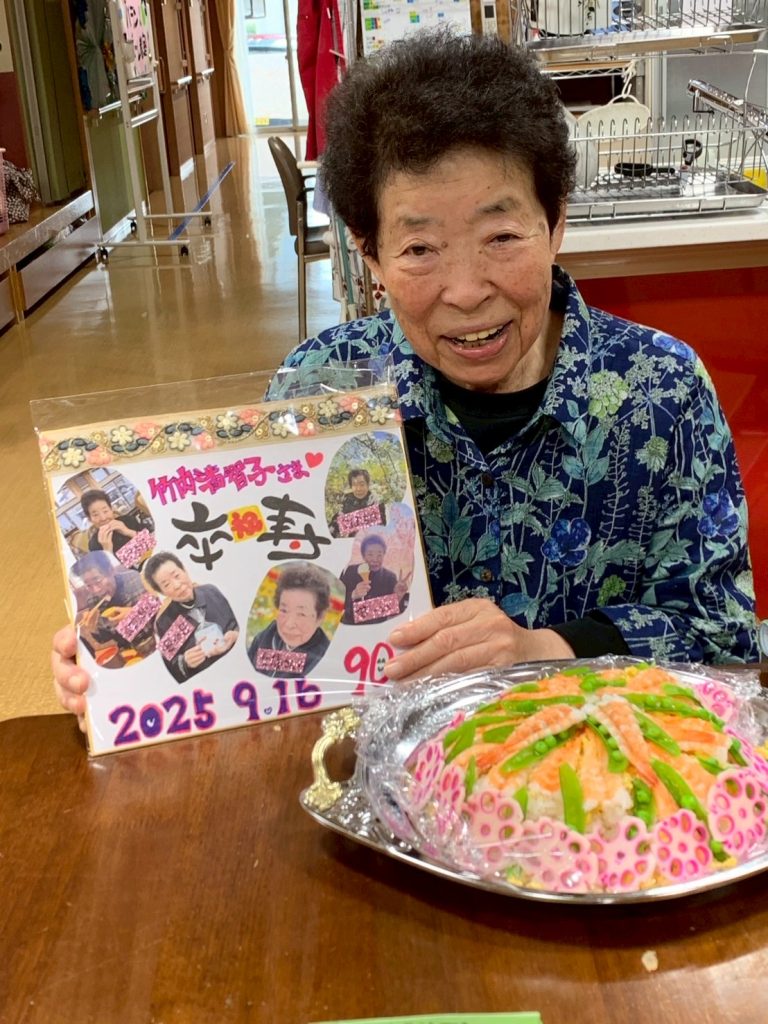 竹内清智子さま♥
卒祝寿
2025 9.15 90